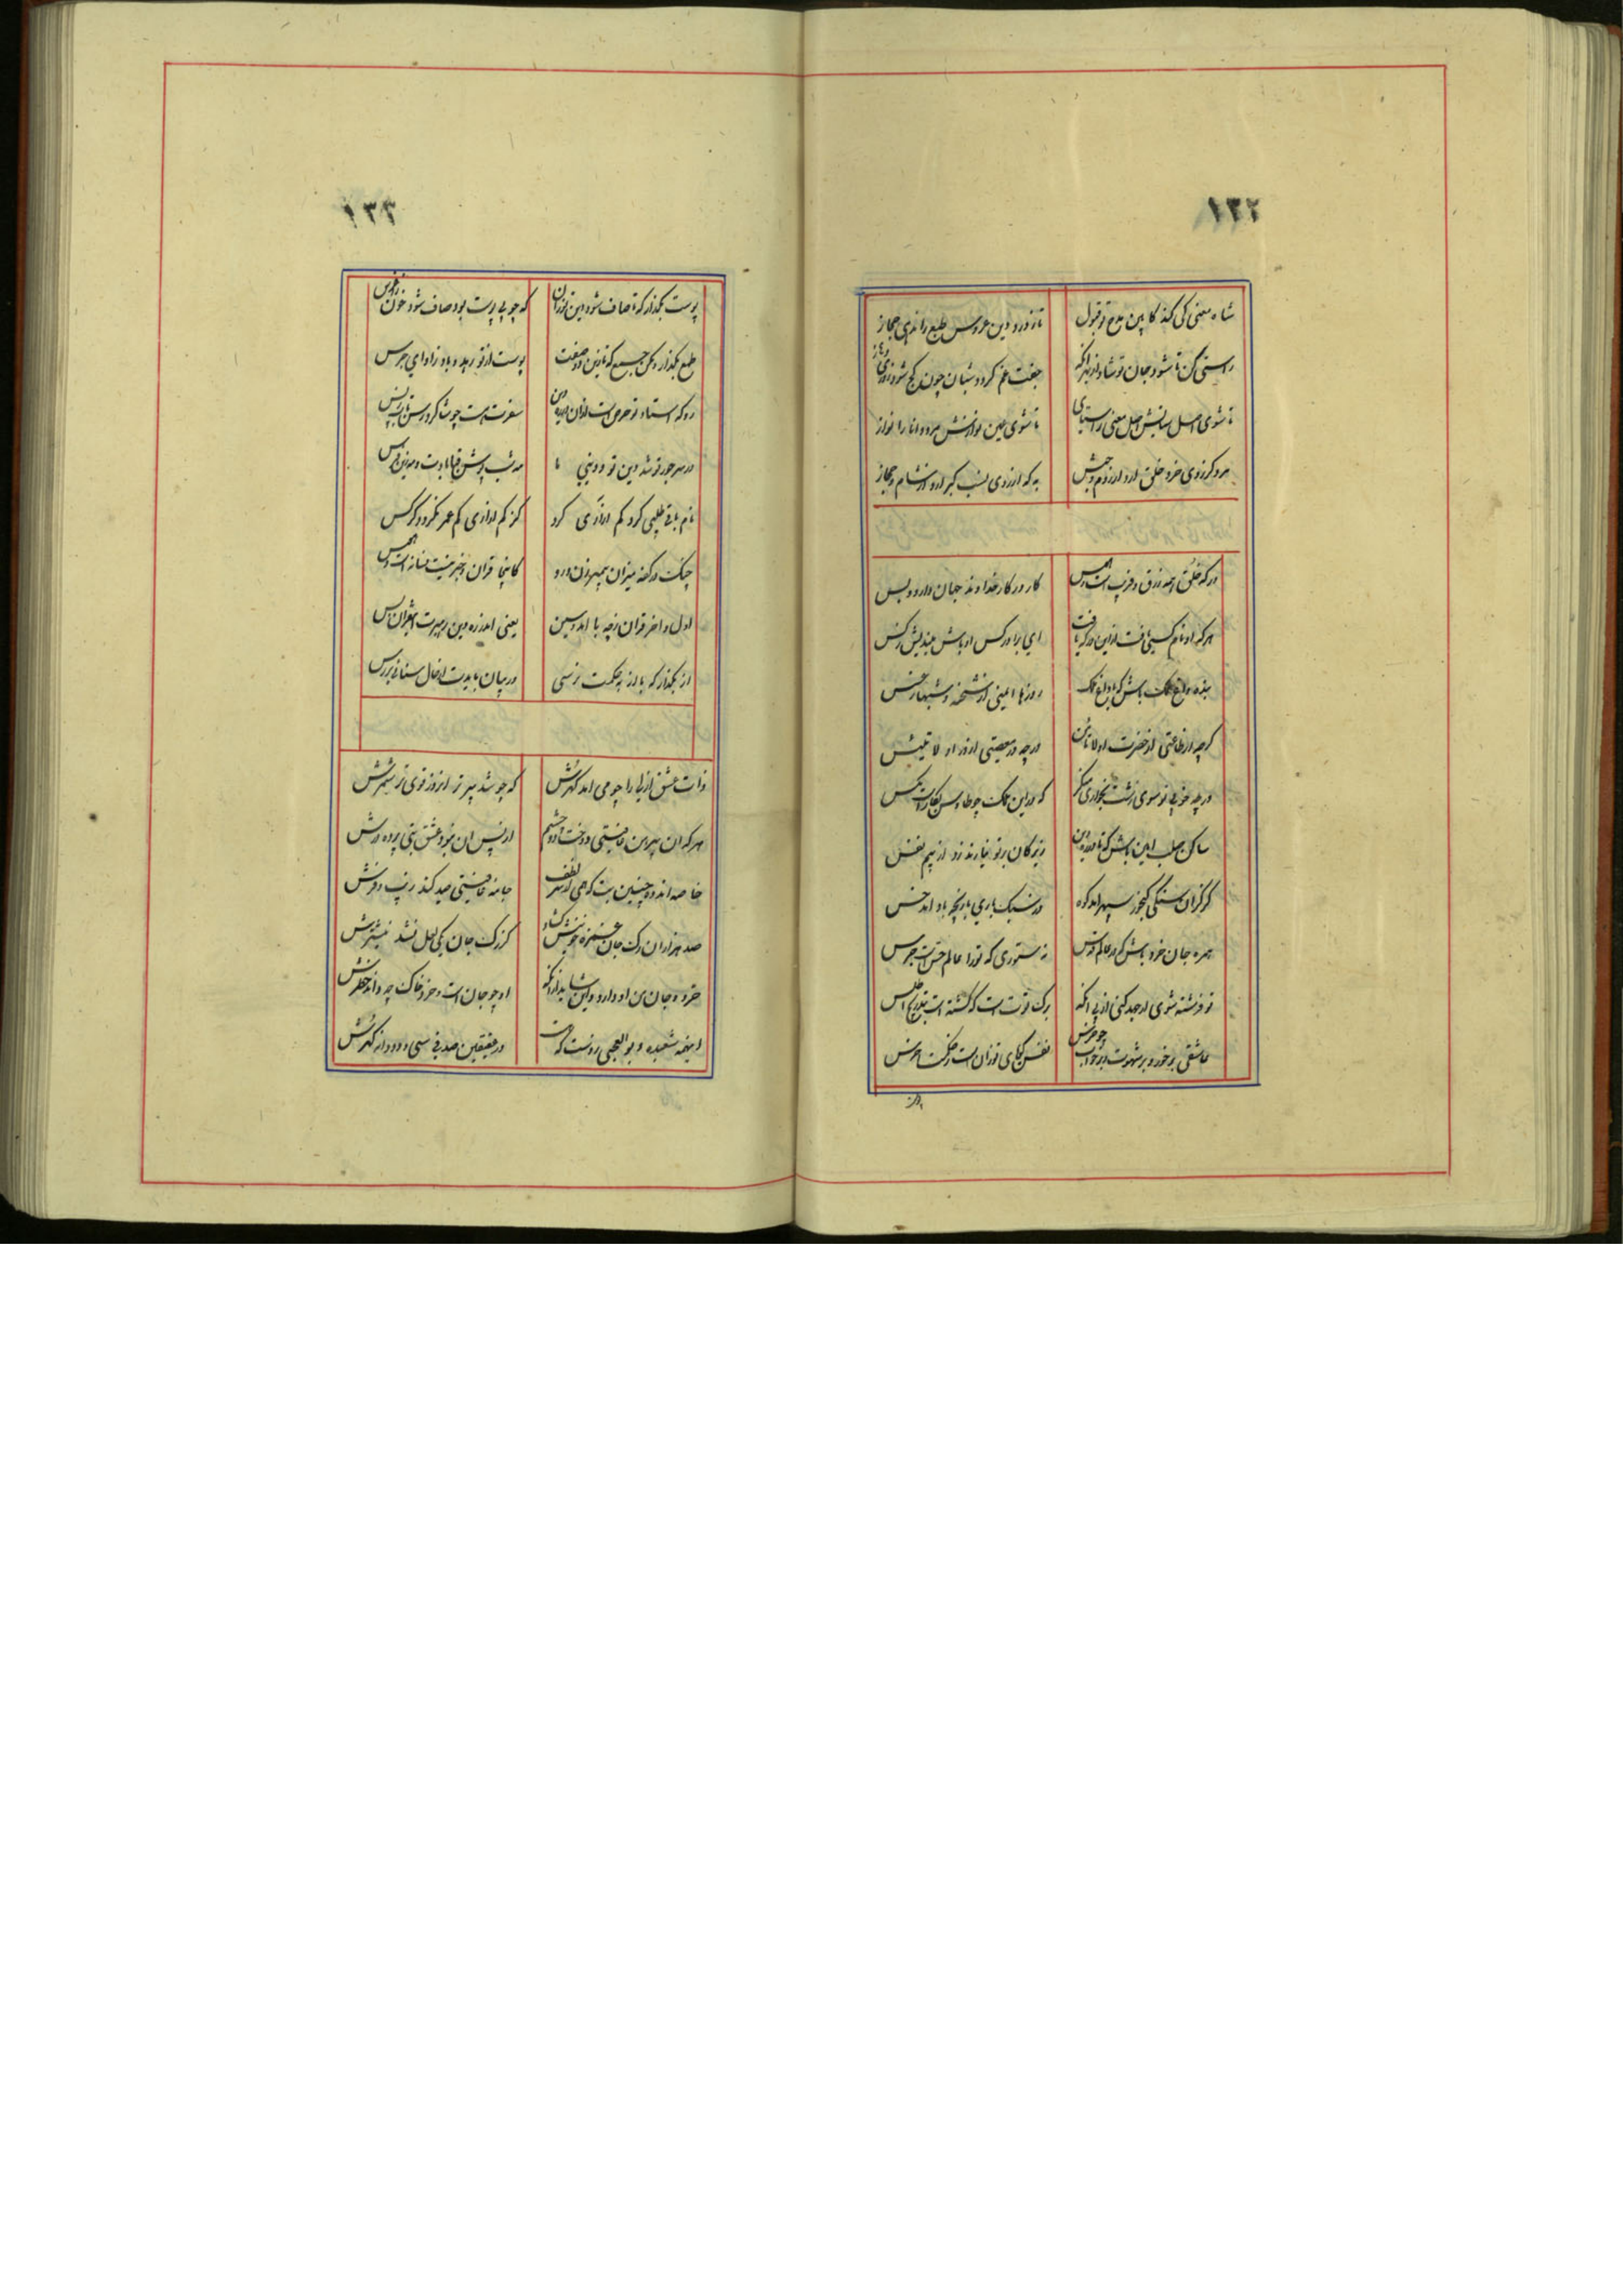 ۱۳۲
شاه معنی کی کند کابین مدح تو قبول
تا تو در دین عروس طبع را ندهی جهاز
راستی کن تا شود جان تو شاد از بهر آنکه
جفت غم کردد شبان چون کج شود
تا شوی اصل ستایش اصل معنی را ستای
تا شوی عین نوازش مرد دانا را نواز
مرد کز روی خرد خلق آرد از روم و حبش
به که از روی نسب کبر آرد از شام و حجاز
در که خلق همه زرق و فریب است و هوس
کار درکار خداوند جهان دارد و بس
هر که او نام کسی یافت از این درکه یافت
ای برادر کس او باش میندیش ز کس
بنده خاص ملک باش که با داغ ملک
روزها ایمنی از شحنه و شبها ز عسس
کرچه در طاعتی از حضرت او لا تامن
ورچه در معصیتی از در او لا تیئس
ورچه خوبی تو سوی زشت بخواری منکر
که در این ملک چو طاوس بکار است مکس
ساکن و صلب و امین باش که تا در ره دین
زیرکان بر تو نیارند زد از بیم نفس
کر کران سنکی کنجور سپهر آمد کوه
در سبک باری بازیچه باد آمد خس
همره جان خرد باش در عالم قدس
نه ستوری که تو را عالم حس است جرس
تو فرشته شوی ار جهد کنی از پی آنکه
برک توت است که کشته است بتدریج اطلس
عاشقی پر خور و پر شهوت و پر خواب چو خرس
نفس کویای تو زان است ز حکمت اخرس
۱۳۳
پوست بگذار که تا صاف شود دین تو زان
که چو بی پوست بود صاف شود خون ز
طمع بگذار و
پوست از تو رهد و باد ز آوای جرس
رو که استاد تو حرص است از آن در ره دین
سفرت هست چو شاکرد رسن تاب ز پس
نام باقی طلبی کرد کم آزاری کرد
کز کم آزاری کم عمر نکردد کرکس
چنک در کفته میزان پیمبر زن و رو
کانجا قران و خبر نیست فسانه است و هوس
اول و آخر قران ز چه با آمد و سین
یعنی اندر ره دین رهبرت این قران بس
آز بگذار که با آز بحکمت نرسی
ور بیان بایدت از حال سنائی بررس
ذات عشق ازلی را چو می آمد کهرش
که چو شد پیر تر آن روز قوی تر شمرش
هر که را آن پیر من عافیتی دوخت
از پس آن نبود عشق بتی پرده درش
خاصه اندوه چنین بت که همی از سر لطف
جامه عافیتی صید کند زیب و فرش
صد هزاران رک جان غمزه خونینش کشاد
کز رک جان یکی لعل نشد نیشترش
خرد و جان من او دارد و این شاید از آنک
او چو جان است و خرد خاک چه داند خطرش
اینهمه شعبده و بوالعجبی زو نیست که هست
در عقیقین صدفی سی و دو دانه کهرش